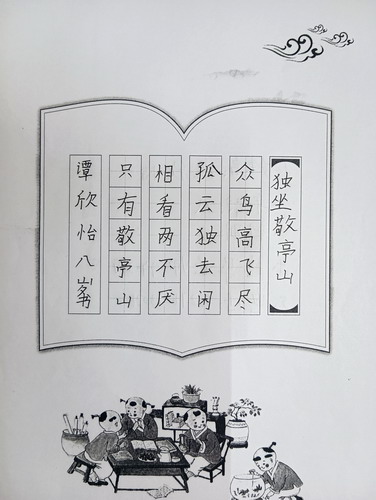 独坐敬亭山
众鸟高飞尽
孤云独去闲
相看两不厌
只有敬亭山
谭欣怡八岁书